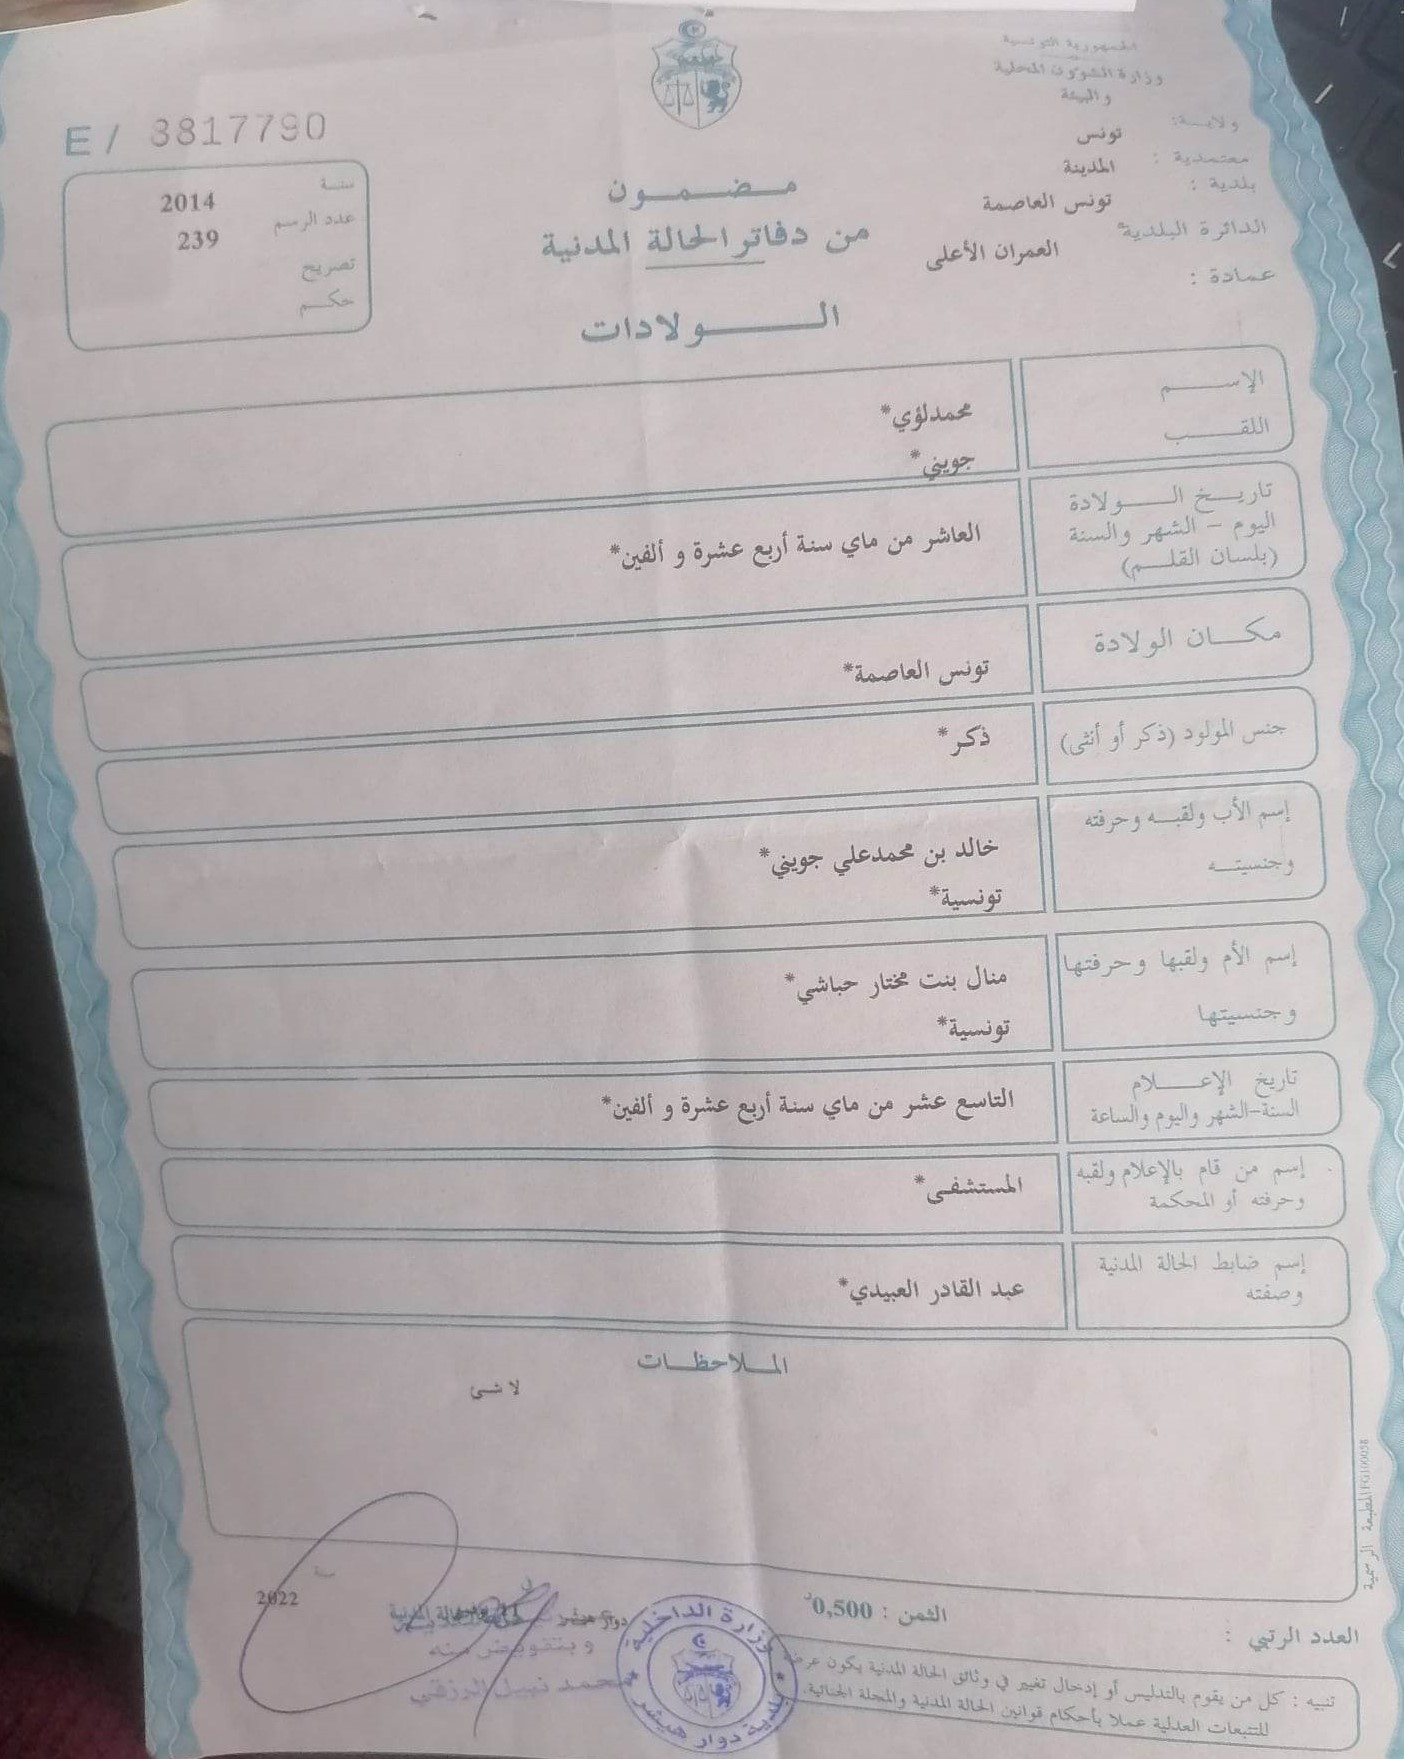 الجمهورية التونسية
وزارة الشؤون المحلية
والبيئة
ولاية: تونس
معتمدية : المدينة
بلدية : تونس العاصمة
الدائرة البلدية العمران الأعلى
عمادة :
E / 3817790
سنة 2014
عدد الرسم 239
تصريح
حكم
مضمون
من دفاتر الحالة المدنية
الولادات
الإسم محمدلؤي*
اللقب جويني*
تاريخ الولادة
اليوم - الشهر والسنة
(بلسان القلم)
العاشر من ماي سنة أربع عشرة و ألفين*
مكان الولادة
تونس العاصمة*
جنس المولود (ذكر أو أنثى)
ذكر*
إسم الأب ولقبه وحرفته
وجنسيته
خالد بن محمدعلي جويني*
تونسية*
إسم الأم ولقبها وحرفتها
وجنسيتها
منال بنت مختار حباشي*
تونسية*
تاريخ الإعلام
السنة-الشهر واليوم والساعة
التاسع عشر من ماي سنة أربع عشرة و ألفين*
إسم من قام بالإعلام ولقبه
وحرفته أو المحكمة
المستشفى*
إسم ضابط الحالة المدنية
وصفته
عبد القادر العبيدي*
الملاحظات
لا شئ
المطبعة الرسمية
العدد الرتبي :
الثمن : 0,500د
دوار هيشر
2022
الحالة المدنية
وبتفويض منه
محمد نبيل الرزقي
وزارة الداخلية
بلدية دوار هيشر
تنبيه : كل من يقوم بالتدليس أو إدخال تغيير في وثائق الحالة المدنية يكون عرضة
للتتبعات العدلية عملا بأحكام قوانين الحالة المدنية والمجلة الجنائية.